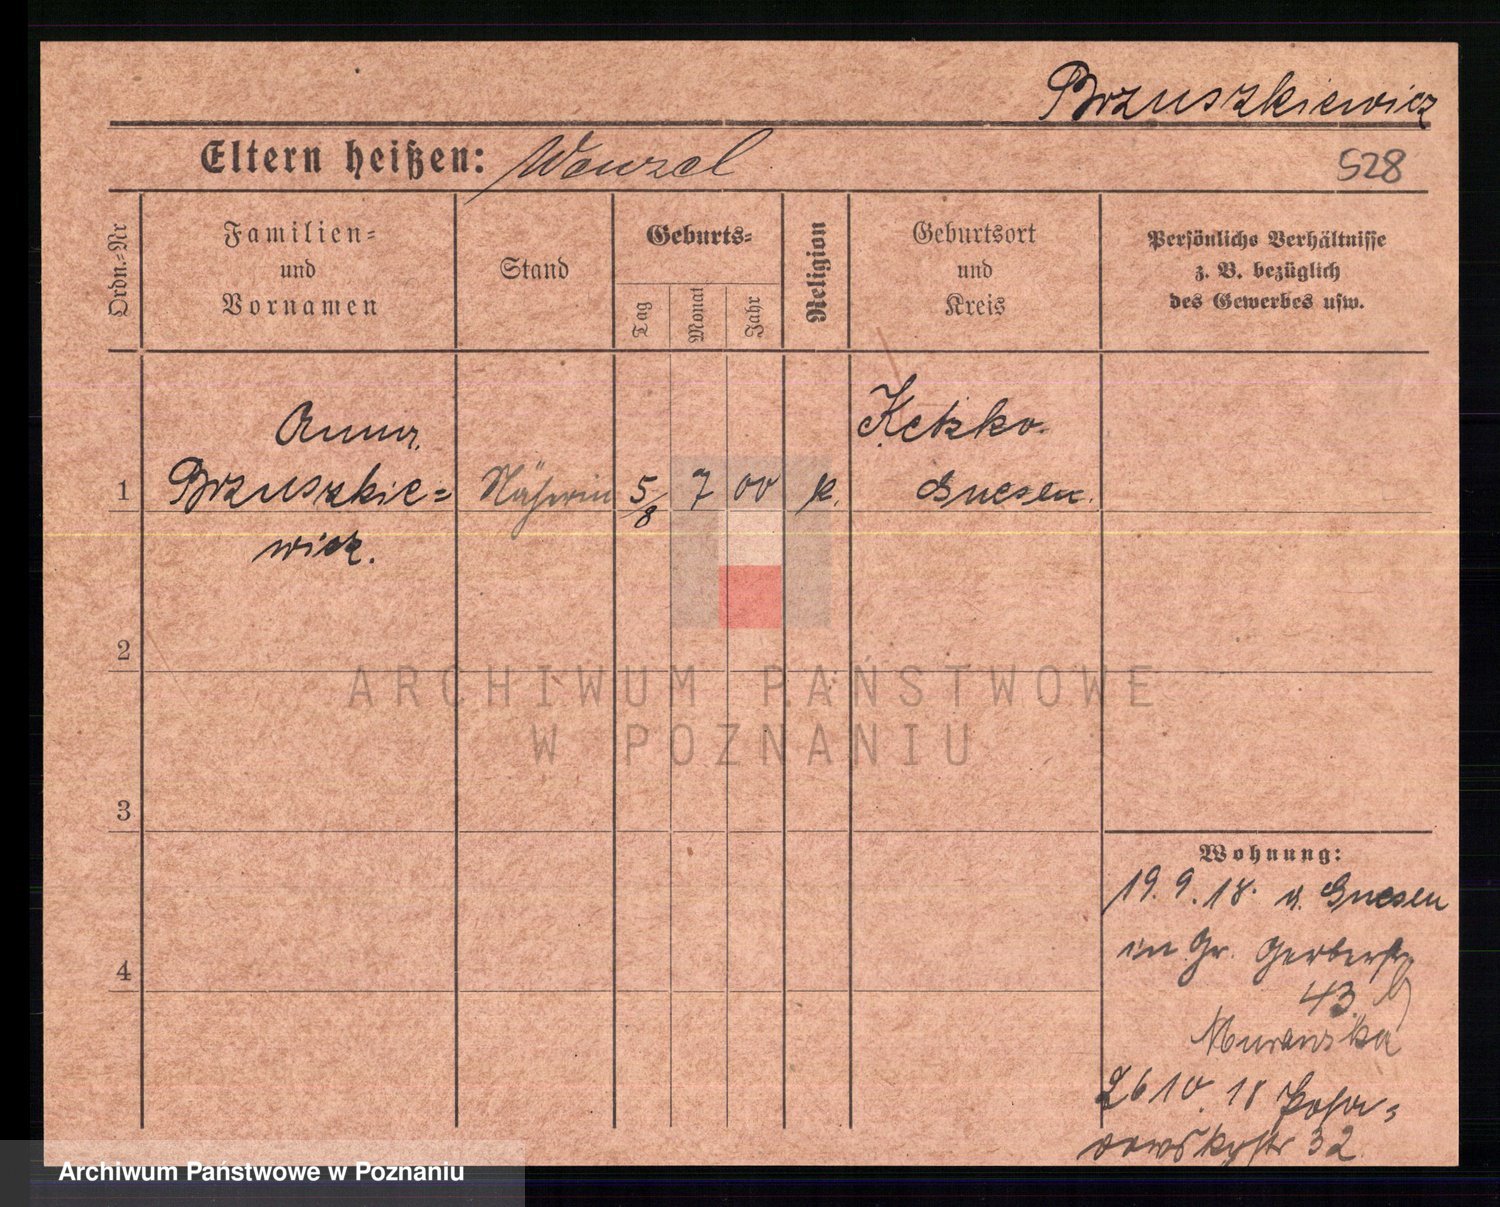 Brzuszkiewicz
Eltern heißen: Wenzel
528
Ordn.-Nr
Familien-
und
Vornamen
Stand
Geburts-
Tag
Monat
Jahr
Religion
Geburtsort
und
Kreis
Persönliche Verhältnisse
z. B. bezüglich
des Gewerbes usw.
1
Anna
Brzuszkie=
wicz.
Näherin
5/8
7
00
k.
Gnesen.
2
3
4
ARCHIWUM PAŃSTWOWE
W POZNANIU
Wohnung:
19. 9. 18. v. Gnesen
in Gr. Gerberstr.
43
26 10. 18
32
Archiwum Państwowe w Poznaniu